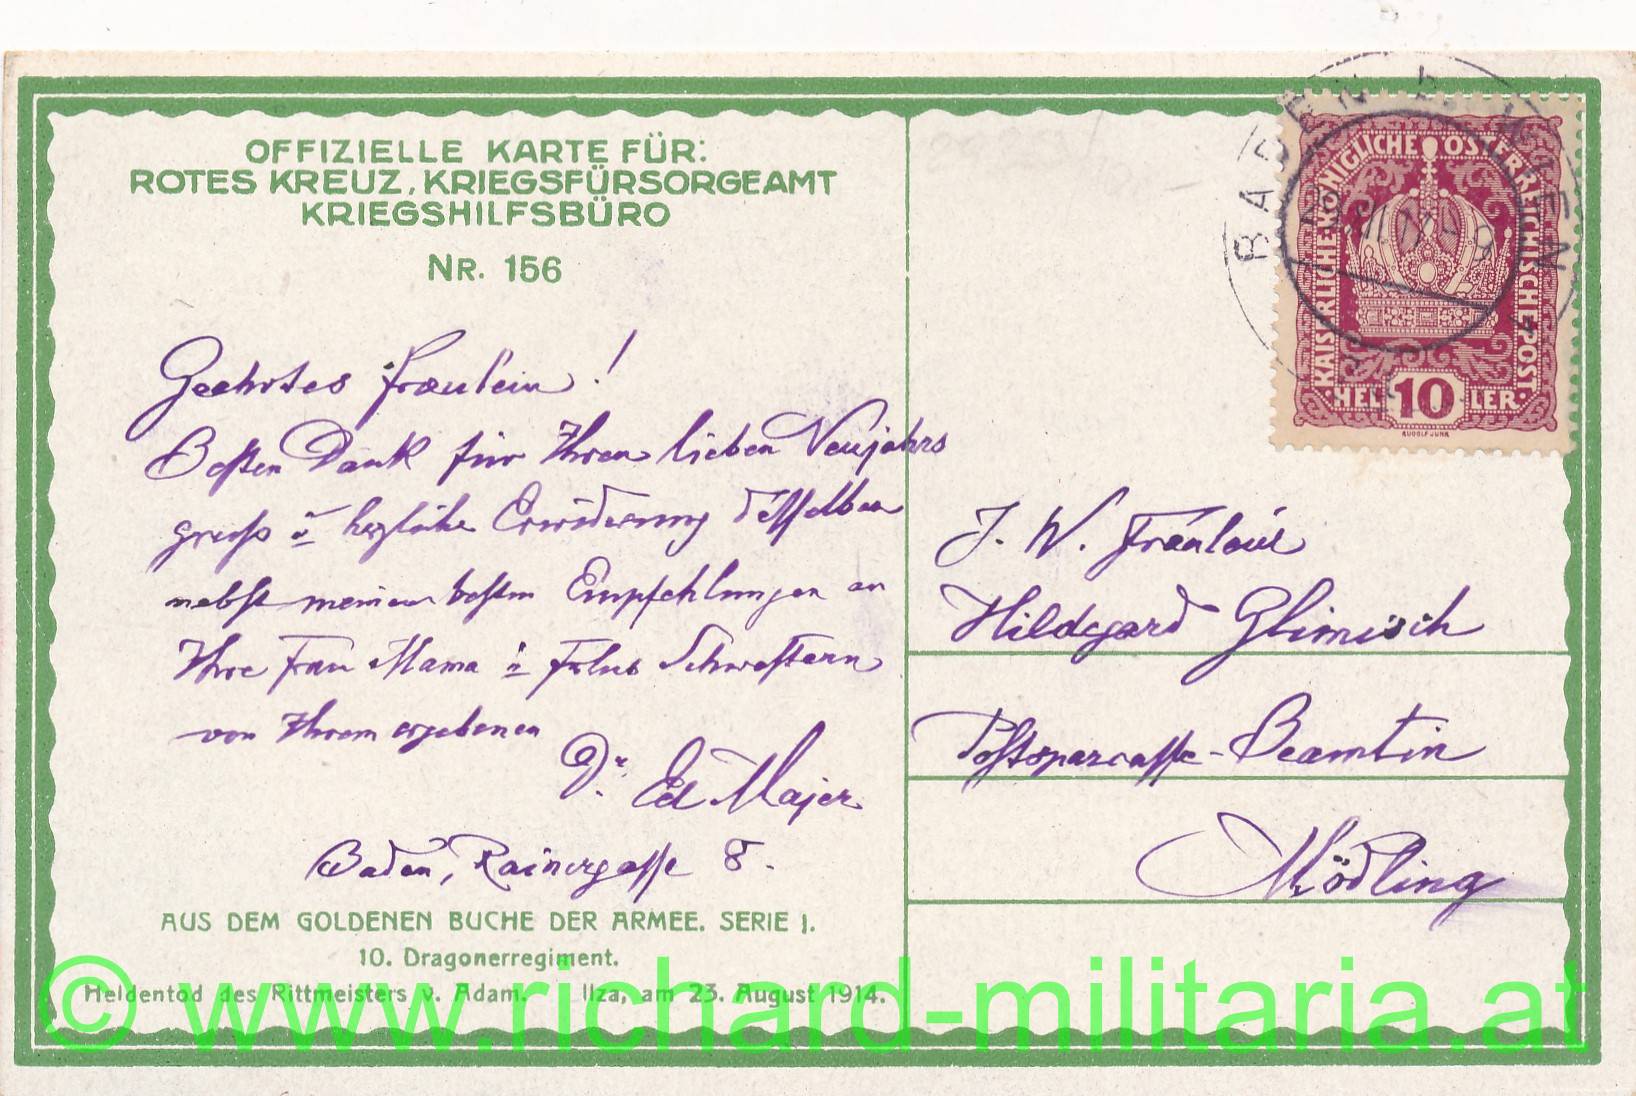 OFFIZIELLE KARTE FÜR:
ROTES KREUZ, KRIEGSFÜRSORGEAMT
KRIEGSHILFSBÜRO
NR. 156
Geehrtes Fräulein!
Besten Dank für Ihren lieben Neujahrs
gruß u herzliche Erwiderung desselben
nebst meinen besten Empfehlungen an
Ihre Frau Mama u Frln Schwestern
von Ihrem ergebenen
Dr. Ed Majer
Baden, Rainergasse 8.
AUS DEM GOLDENEN BUCHE DER ARMEE. SERIE I.
10. Dragonerregiment.
Heldentod des Rittmeisters v. Adam. Ilza, am 23. August 1914.
BADEN b. WIEN
KAISERLICHE KÖNIGLICHE ÖSTERREICHISCHE POST
HELLER
10
RUDOLF JUNK
J. W. Fräulein
Hildegard Glimisch
Postsparcasse-Beamtin
Mödling
© www.richard-militaria.at